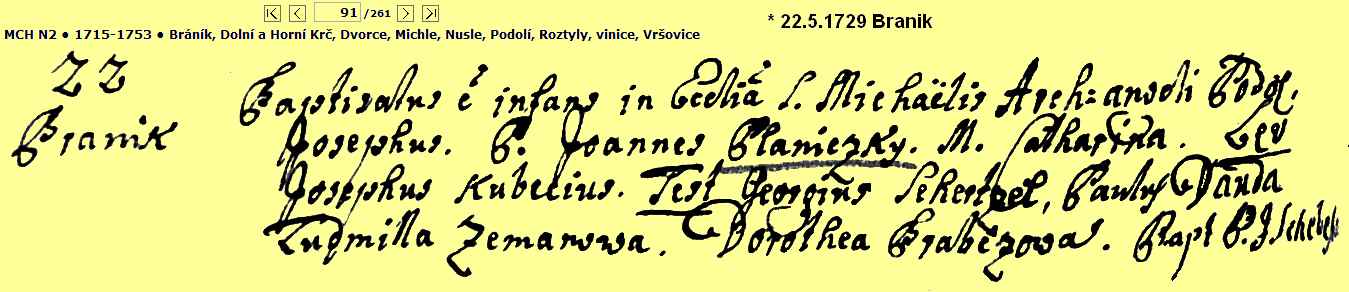 91 /261
* 22.5.1729 Branik
MCH N2 • 1715-1753 • Bráník, Dolní a Horní Krč, Dvorce, Michle, Nusle, Podolí, Roztyly, vinice, Vršovice
22
Branik
Baptisatus ē infans in Ecclīa S. Michaëlis Arch: angeli Podol.
Josephus. P. Joannes Planiczky. M. Catharina. Lev
Josephus Kubecius. Test Georgius, Paulus Vanda
Ludmilla Zemanowa. Dorothea Brabczowa. Bapt P. J